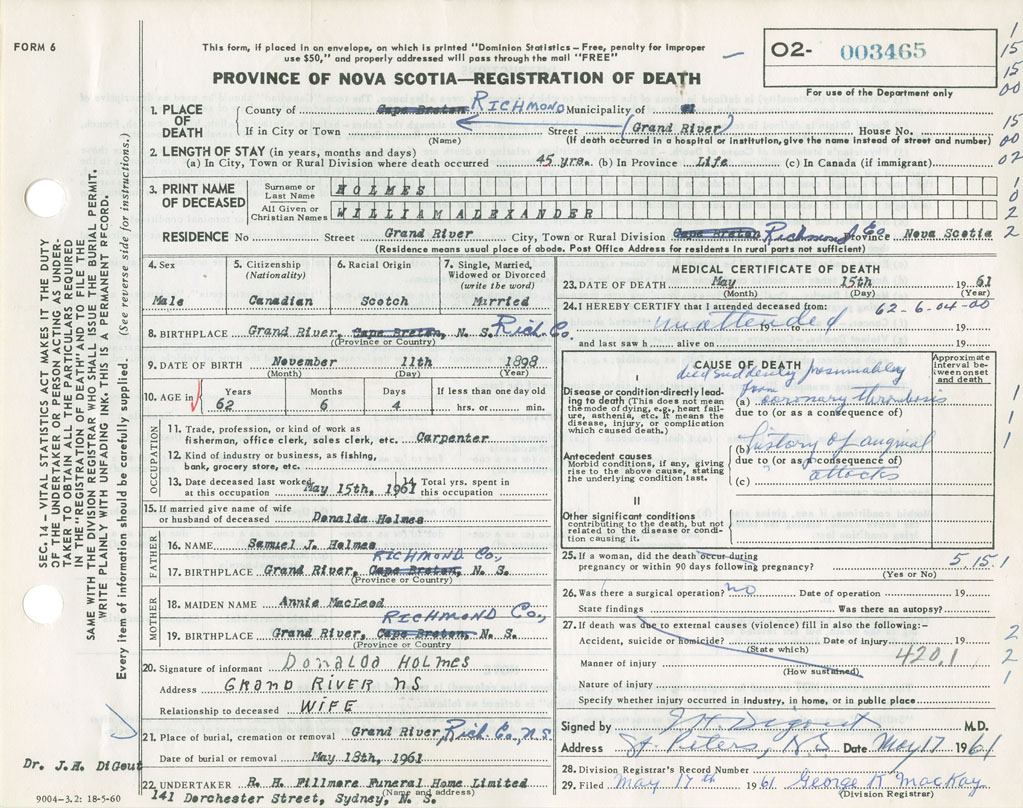 FORM 6
This form, if placed in an envelope, on which is printed "Dominion Statistics – Free, penalty for improper
use $50," and properly addressed will pass through the mail "FREE"
O2- 003465
For use of the Department only
PROVINCE OF NOVA SCOTIA—REGISTRATION OF DEATH
1. PLACE OF DEATH { County of Cape Breton RICHMOND Municipality of
If in City or Town Street (Grand River) House No.
(Name) (If death occurred in a hospital or institution, give the name instead of street and number)
2. LENGTH OF STAY (in years, months and days)
(a) In City, Town or Rural Division where death occurred 45 yrs. (b) In Province Life (c) In Canada (if immigrant)
3. PRINT NAME OF DECEASED
Surname or Last Name HOLMES
All Given or Christian Names WILLIAM ALEXANDER
RESIDENCE No Street Grand River City, Town or Rural Division Cape Breton Richmond Co Province Nova Scotia
(Residence means usual place of abode. Post Office Address for residents in rural parts not sufficient)
4. Sex Male
5. Citizenship (Nationality) Canadian
6. Racial Origin Scotch
7. Single, Married, Widowed or Divorced (write the word) Married
8. BIRTHPLACE Grand River, Cape Breton, N. S. Rich. Co.
(Province or Country)
9. DATE OF BIRTH November 11th 1898
(Month) (Day) (Year)
10. AGE in Years 62 Months 6 Days 4 If less than one day old hrs. or min.
OCCUPATION
11. Trade, profession, or kind of work as fisherman, office clerk, sales clerk, etc. Carpenter
12. Kind of industry or business, as fishing, bank, grocery store, etc.
13. Date deceased last worked at this occupation May 15th, 1961
14. Total yrs. spent in this occupation
15. If married give name of wife or husband of deceased Donalda Holmes
FATHER
16. NAME Samuel J. Holmes
RICHMOND CO,
17. BIRTHPLACE Grand River, Cape Breton, N. S.
(Province or Country)
MOTHER
18. MAIDEN NAME Annie MacLeod
RICHMOND Co,
19. BIRTHPLACE Grand River, Cape Breton, N. S.
(Province or Country
20. Signature of informant DONALDA HOLMES
Address GRAND RIVER NS
Relationship to deceased WIFE
21. Place of burial, cremation or removal Grand River, Rich. Co., N.S.
Date of burial or removal May 18th, 1961
22. UNDERTAKER R. H. Fillmore Funeral Home Limited
(Name and address)
141 Dorchester Street, Sydney, N. S.
MEDICAL CERTIFICATE OF DEATH
23. DATE OF DEATH May 15th 1961
(Month) (Day) (Year)
24. I HEREBY CERTIFY that I attended deceased from: 62-6-04-00
unattended 19 to 19
and last saw h alive on 19
CAUSE OF DEATH
Approximate interval between onset and death
I
Disease or condition directly leading to death (This does not mean the mode of dying, e.g., heart failure, asthenia, etc. It means the disease, injury, or complication which caused death.)
died suddenly presumably from
(a) coronary thrombosis
due to (or as a consequence of)
Antecedent causes
Morbid conditions, if any, giving rise to the above cause, stating the underlying condition last.
(b) history of anginal
due to (or as a consequence of)
(c) attacks
II
Other significant conditions
contributing to the death, but not related to the disease or condition causing it.
25. If a woman, did the death occur during pregnancy or within 90 days following pregnancy? 5.15.1
(Yes or No)
26. Was there a surgical operation? no Date of operation 19
State findings Was there an autopsy?
27. If death was due to external causes (violence) fill in also the following:-
Accident, suicide or homicide? Date of injury 19
(State which)
Manner of injury 420.1
(How sustained)
Nature of injury
Specify whether injury occurred in industry, in home, or in public place
Signed by J H Digout M.D.
Address St. Peters, N.S. Date May 17 1961
28. Division Registrar's Record Number
29. Filed May 17th 1961 George R MacKay
(Division Registrar)
SEC. 14 – VITAL STATISTICS ACT MAKES IT THE DUTY
OF THE UNDERTAKER OR PERSON ACTING AS UNDER-
TAKER TO OBTAIN ALL THE PARTICULARS REQUIRED
IN THE "REGISTRATION OF DEATH" AND TO FILE THE
SAME WITH THE DIVISION REGISTRAR WHO SHALL ISSUE THE BURIAL PERMIT.
WRITE PLAINLY WITH UNFADING INK. THIS IS A PERMANENT RECORD.
Every item of information should be carefully supplied. (See reverse side for instructions.)
Dr. J.H. DiGout
9004-3.2: 18-5-60
1
15
15
00
15
00
02
1
0
2
2
1
1
1
1
2
2
1